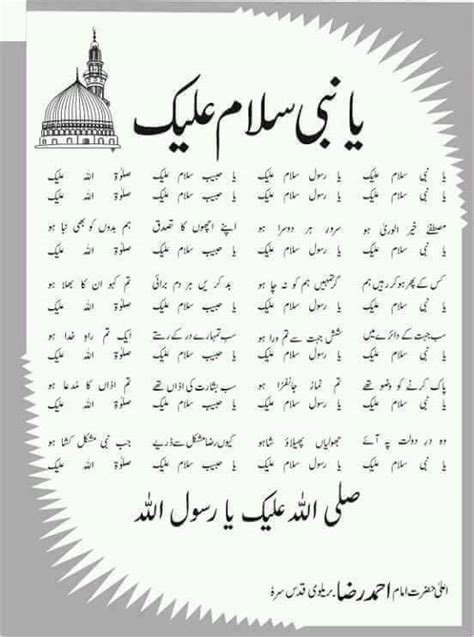 یا نبی سلام علیک
یا نبی سلام علیک یا رسول سلام علیک یا حبیب سلام علیک صلوٰۃ اللہ علیک
یا نبی سلام علیک یا رسول سلام علیک یا حبیب سلام علیک صلوٰۃ اللہ علیک
مصطفیٰ خیر الوریٰ ہو سرور ہر دوسرا ہو اپنے اچھوں کا تصدق ہم بدوں کو بھی نبا ہو
یا نبی سلام علیک یا رسول سلام علیک یا حبیب سلام علیک صلوٰۃ اللہ علیک
کس کے پھر ہو کر رہیں ہم گر تمہیں ہم کو نہ چا ہو بد کریں ہر دم برائی تم کہو ان کا بھلا ہو
یا نبی سلام علیک یا رسول سلام علیک یا حبیب سلام علیک صلوٰۃ اللہ علیک
سب جہت کے دائرے میں شش جہت سے تم ورا ہو سب تمہارے در کے رستے ایک تم راہِ خدا ہو
یا نبی سلام علیک یا رسول سلام علیک یا حبیب سلام علیک صلوٰۃ اللہ علیک
پاک کرنے کو وضو تھے تم نماز جانفزا ہو سب بشارت کی اذاں تھے تم اذاں کا مُدعا ہو
یا نبی سلام علیک یا رسول سلام علیک یا حبیب سلام علیک صلوٰۃ اللہ علیک
وہ در دولت پہ آئے جھولیاں پھیلاؤ شاہو کیوں رضا مشکل سے ڈریے جب نبی مشکل کشا ہو
یا نبی سلام علیک یا رسول سلام علیک یا حبیب سلام علیک صلوٰۃ اللہ علیک
صلی اللہ علیک یا رسول اللہ
اعلیٰ حضرت امام احمد رضا بریلوی قدس سرہٗ